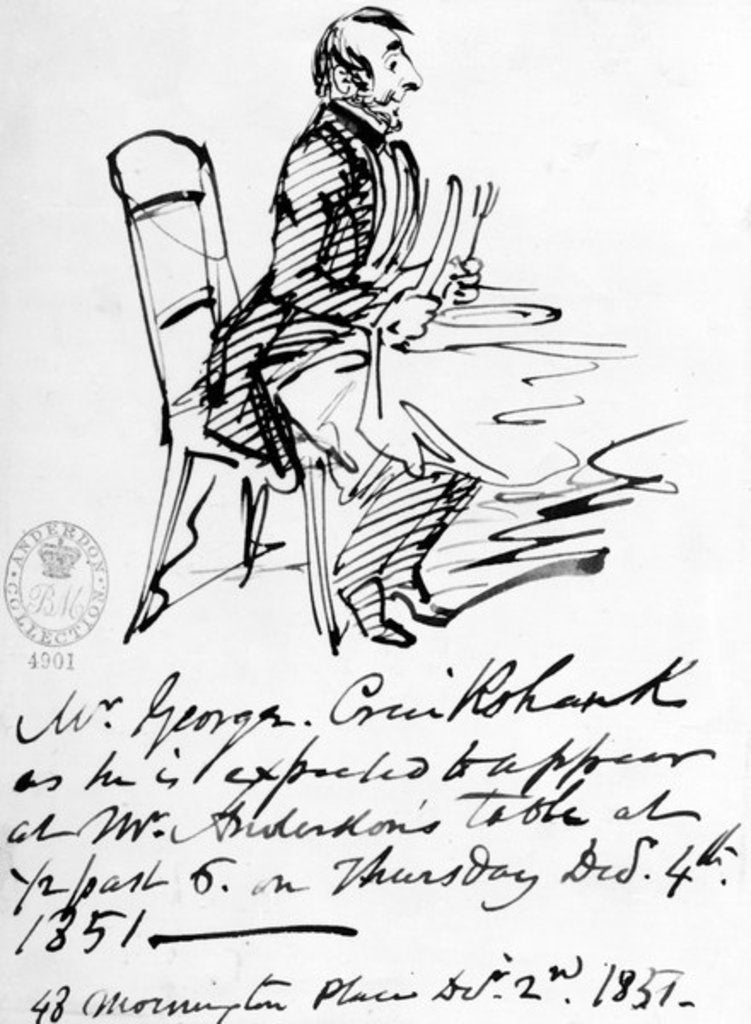 ANDERDON COLLECTION
BM
4901
Mr. George. Cruikshank
as he is expected to appear
at Mr. Anderdon's table at
1/2 past 6. on Thursday Decr. 4th.
1851
48 Mornington Place Decr. 2nd. 1851.